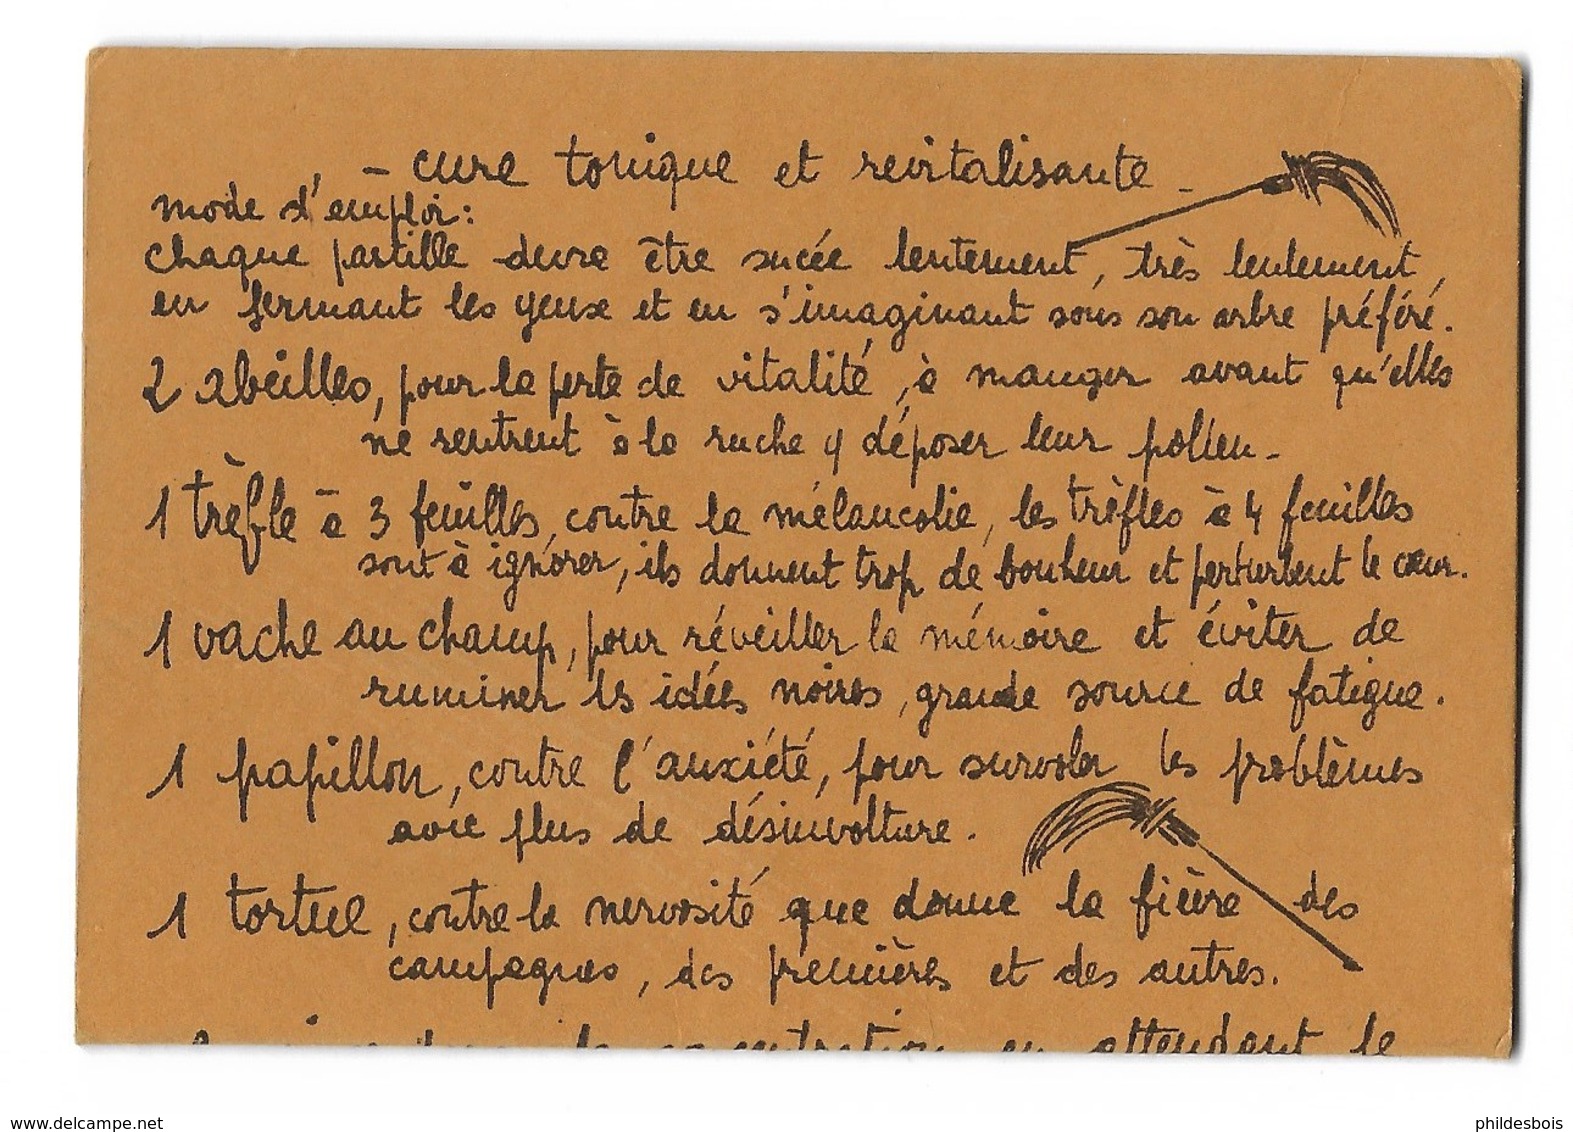 - cure tonique et revitalisante -
mode d'emploi :
chaque pastille devra être sucée lentement, très lentement,
en fermant les yeux et en s'imaginant sous son arbre préféré.
2 abeilles, pour la perte de vitalité, à manger avant qu'elles
ne rentrent à la ruche y déposer leur pollen -
1 trèfle à 3 feuilles, contre la mélancolie, les trèfles à 4 feuilles
sont à ignorer, ils donnent trop de bonheur et perturbent le cœur.
1 vache au champ, pour réveiller la mémoire et éviter de
ruminer les idées noires, grande source de fatigue.
1 papillon, contre l'anxiété, pour survoler les problèmes
avec plus de désinvolture.
1 tortue, contre la nervosité que donne la fièvre des
campagnes, des premières et des autres.
la concentration en attendant le
www.delcampe.net
phildesbois